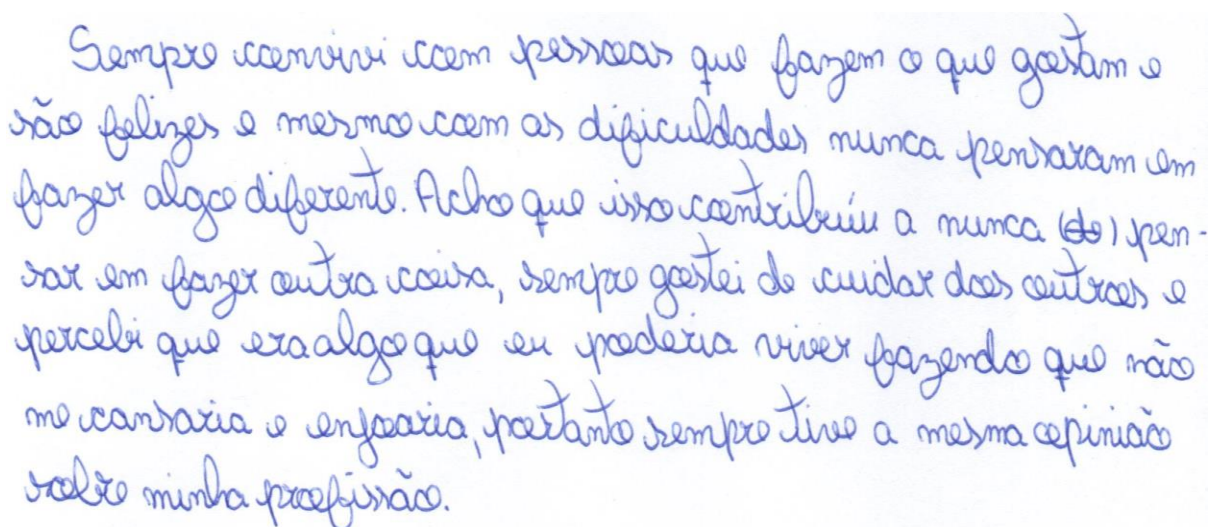 Sempre convivi com pessoas que fazem o que gostam e
são felizes e mesmo com as dificuldades nunca pensaram em
fazer algo diferente. Acho que isso contribuíu a nunca (de) pen-
sar em fazer outra coisa, sempre gostei de cuidar dos outros e
percebi que era algo que eu poderia viver fazendo que não
me cansaria e enjoaria, portanto sempre tive a mesma opinião
sobre minha profissão.